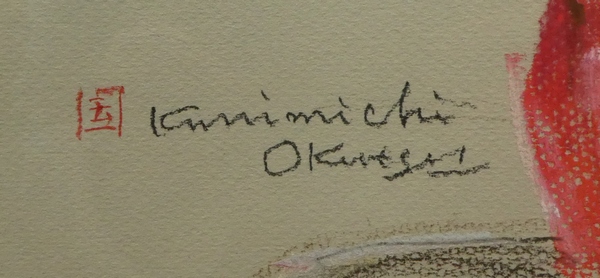 国
Kunimichi
Okuegawa